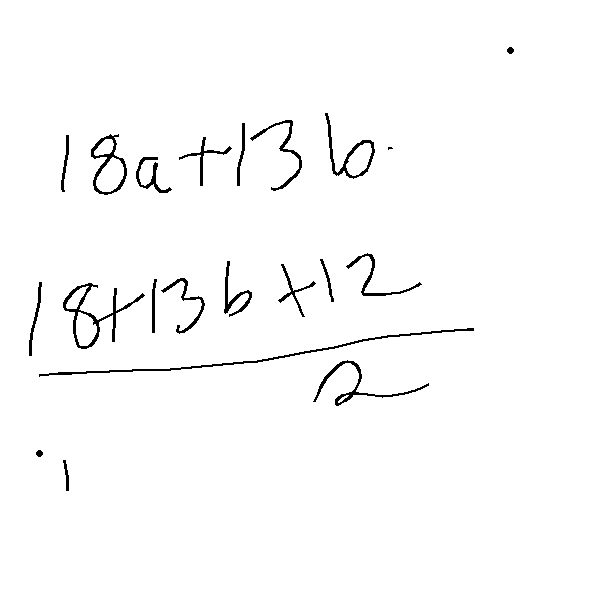 18a+13b
18+13b+12
2